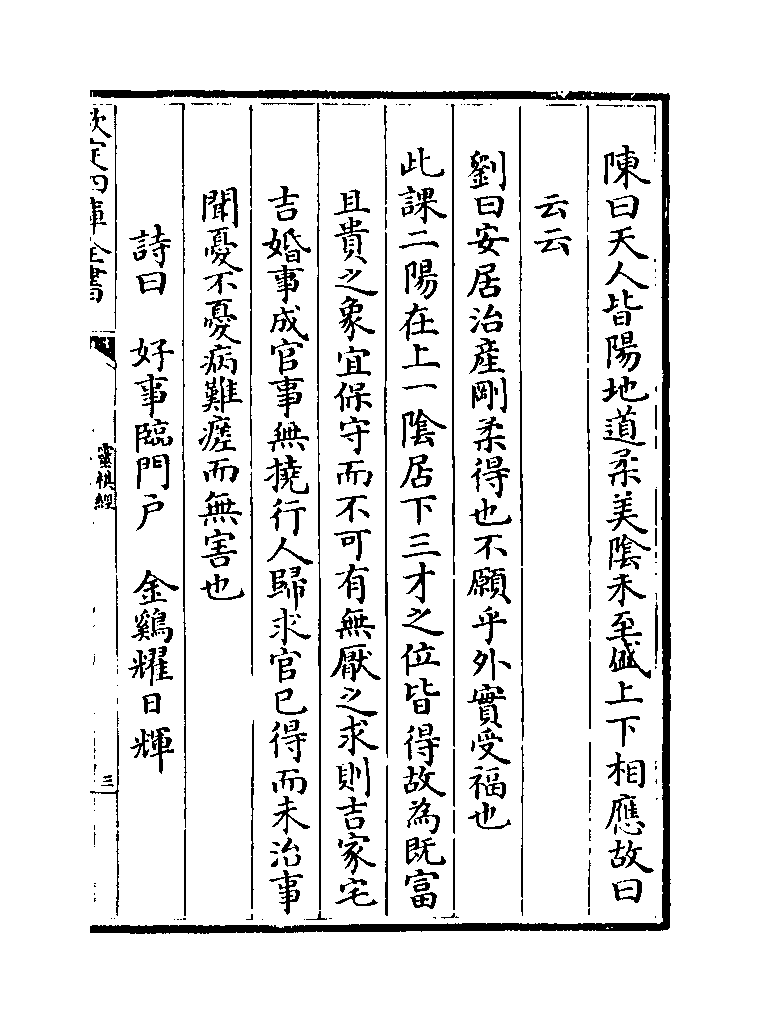 陳曰天人皆陽地道柔美陰未至盛上下相應故曰
云云
劉曰安居治產剛柔得也不願乎外實受福也
此課二陽在上一陰居下三才之位皆得故為既富
且貴之象宜保守而不可有無厭之求則吉家宅
吉婚事成官事無撓行人歸求官已得而未治事
聞憂不憂病難瘥而無害也
詩曰　好事臨門戶　金鷄耀日輝
欽定四庫全書
靈棋經
三